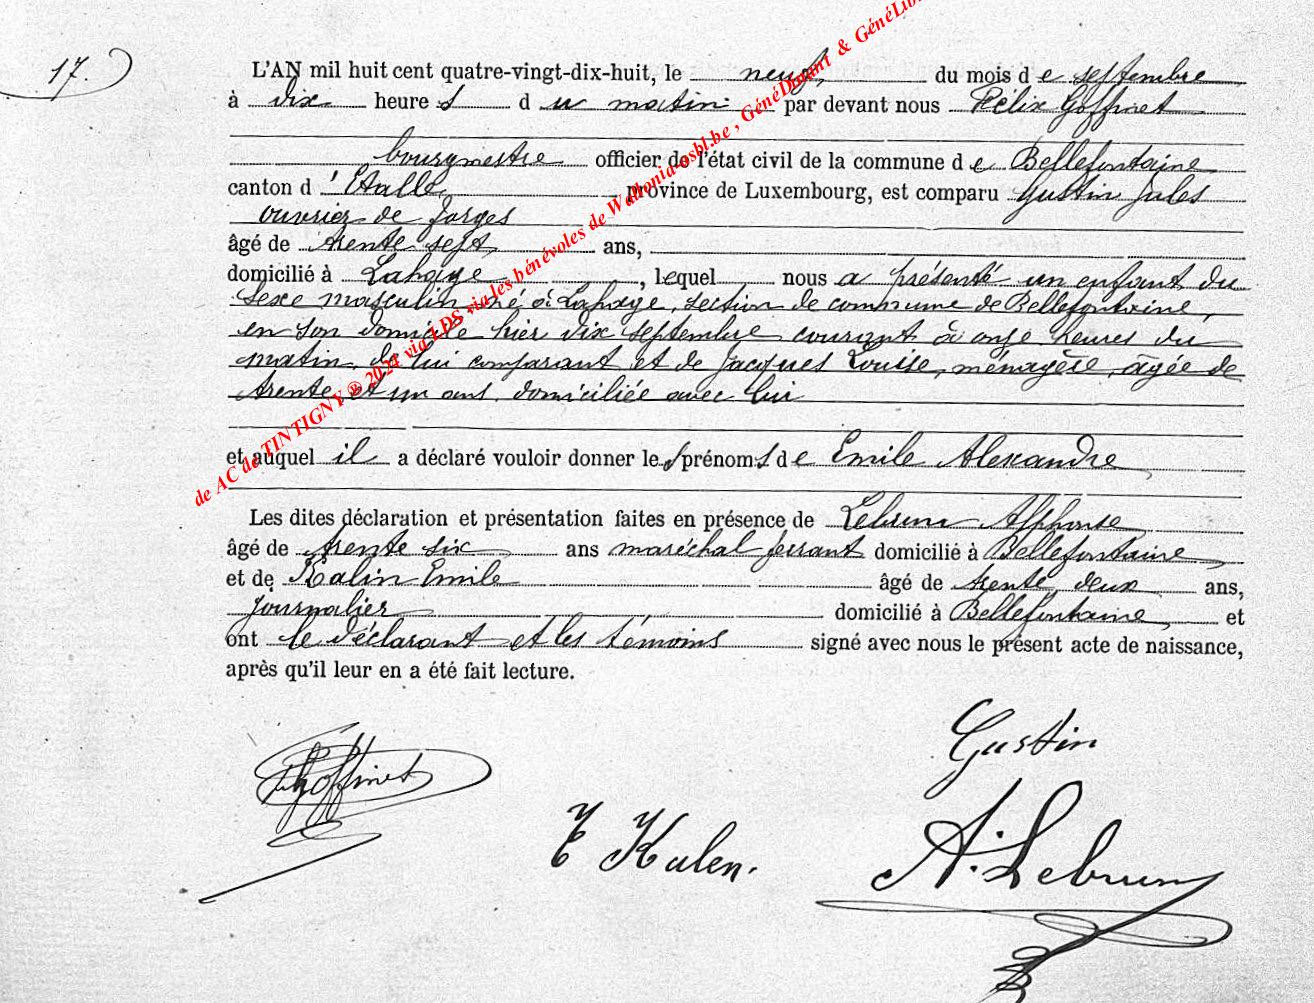 17.
L'AN mil huit cent quatre-vingt-dix-huit, le neuf du mois de septembre
à dix heures du matin par devant nous Félix Goffinet
bourgmestre officier de l'état civil de la commune de Bellefontaine
canton d'Etalle province de Luxembourg, est comparu Gustin Jules
ouvrier de forges
âgé de trente sept ans,
domicilié à Lahage, lequel nous a présenté un enfant du
sexe masculin né à Lahage, section de commune de Bellefontaine,
en son domicile hier dix septembre courant à onze heures du
matin, de lui comparant et de Jacques Louise, ménagère, âgée de
trente et un ans, domiciliée avec lui
et auquel il a déclaré vouloir donner les prénoms de Emile Alexandre
Les dites déclaration et présentation faites en présence de Lebrun Alphonse
âgé de trente six ans maréchal ferrant domicilié à Bellefontaine,
et de Kalin Emile âgé de trente deux ans,
journalier domicilié à Bellefontaine, et
ont le déclarant et les témoins signé avec nous le présent acte de naissance,
après qu'il leur en a été fait lecture.
Goffinet
Gustin
E Kalen.
A. Lebrun
de AC de TINTIGNY ® 2024 via LDS via les bénévoles de Wallonia-asbl.be, GénéDinant & GénéLib